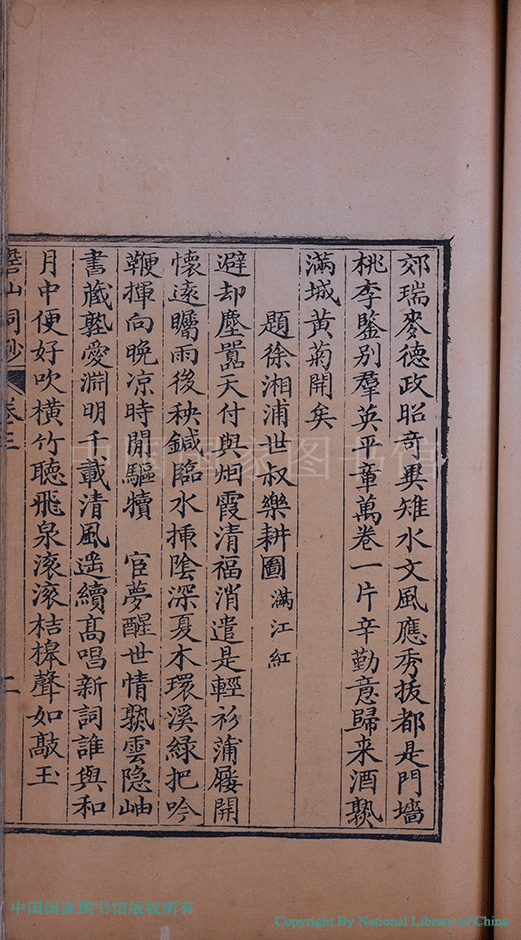 郊瑞麥德政昭奇異雉水文風應秀拔都是門墻
桃李鑒別羣英平章萬卷一片辛勤意歸来酒熟
滿城黄菊開矣
題徐湘浦世叔樂耕圖 滿江紅
避却塵囂天付與烟霞清福消遣是輕衫蒲屨開
懷遠矚雨後秧鍼臨水揷陰深夏木環溪緑把吟
鞭揮向晚凉時閒驅犢 官夢醒世情熟雲隐岫
書藏塾愛淵明千載清風遥續高唱新詞誰與和
月中便好吹横竹聴飛泉滚滚桔槹聲如敲玉
山詞鈔 卷三 二
中国国家图书馆
中国国家图书馆版权所有
Copyright By National Library of China